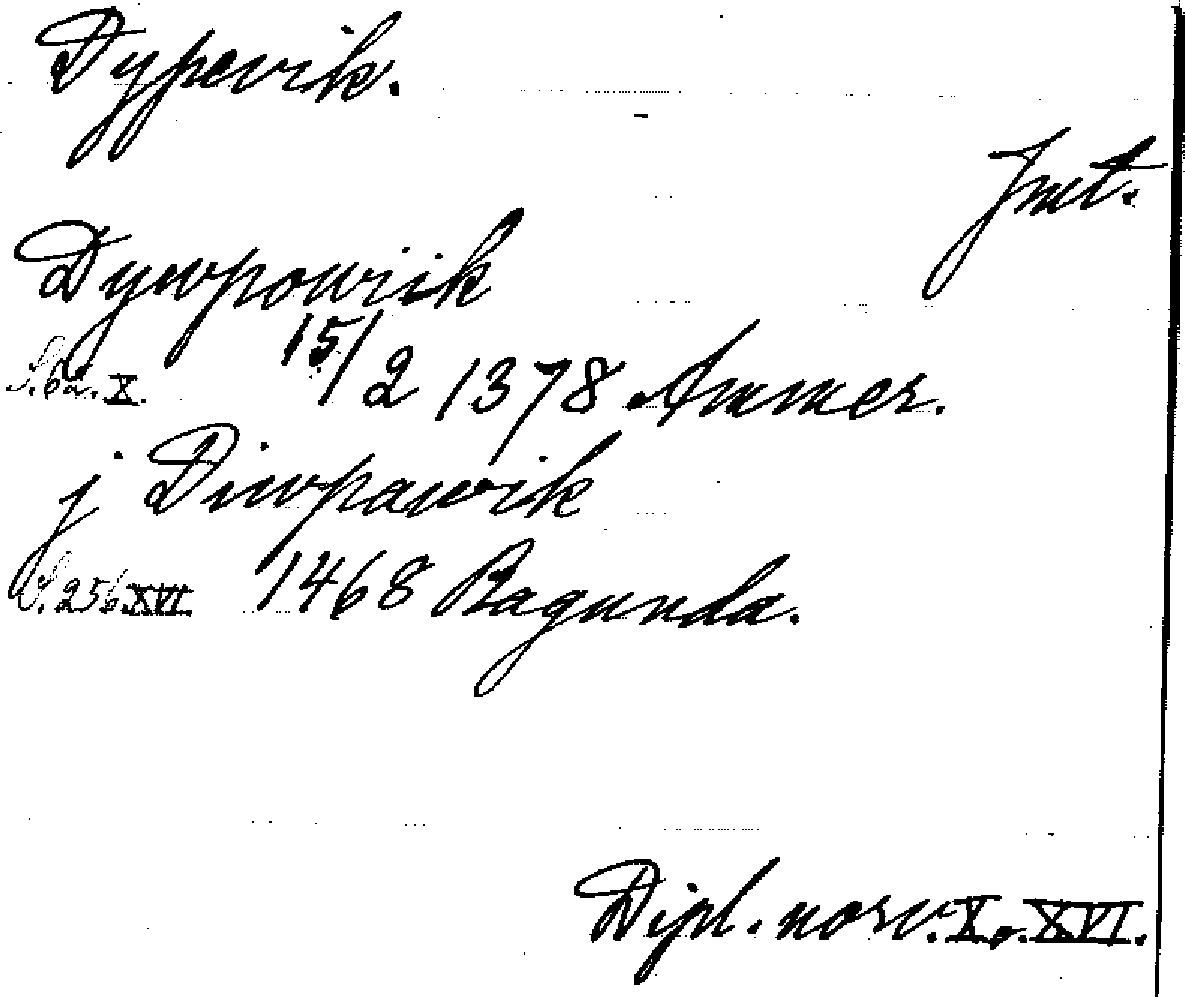 Dypevik.
Jmt.
Dywpowiik
S. 62. X. 15/2 1378 Ammer.
j Diwpawik
S. 256 XVI 1468 Ragunda.
Dipl. norv. X o. XVI.